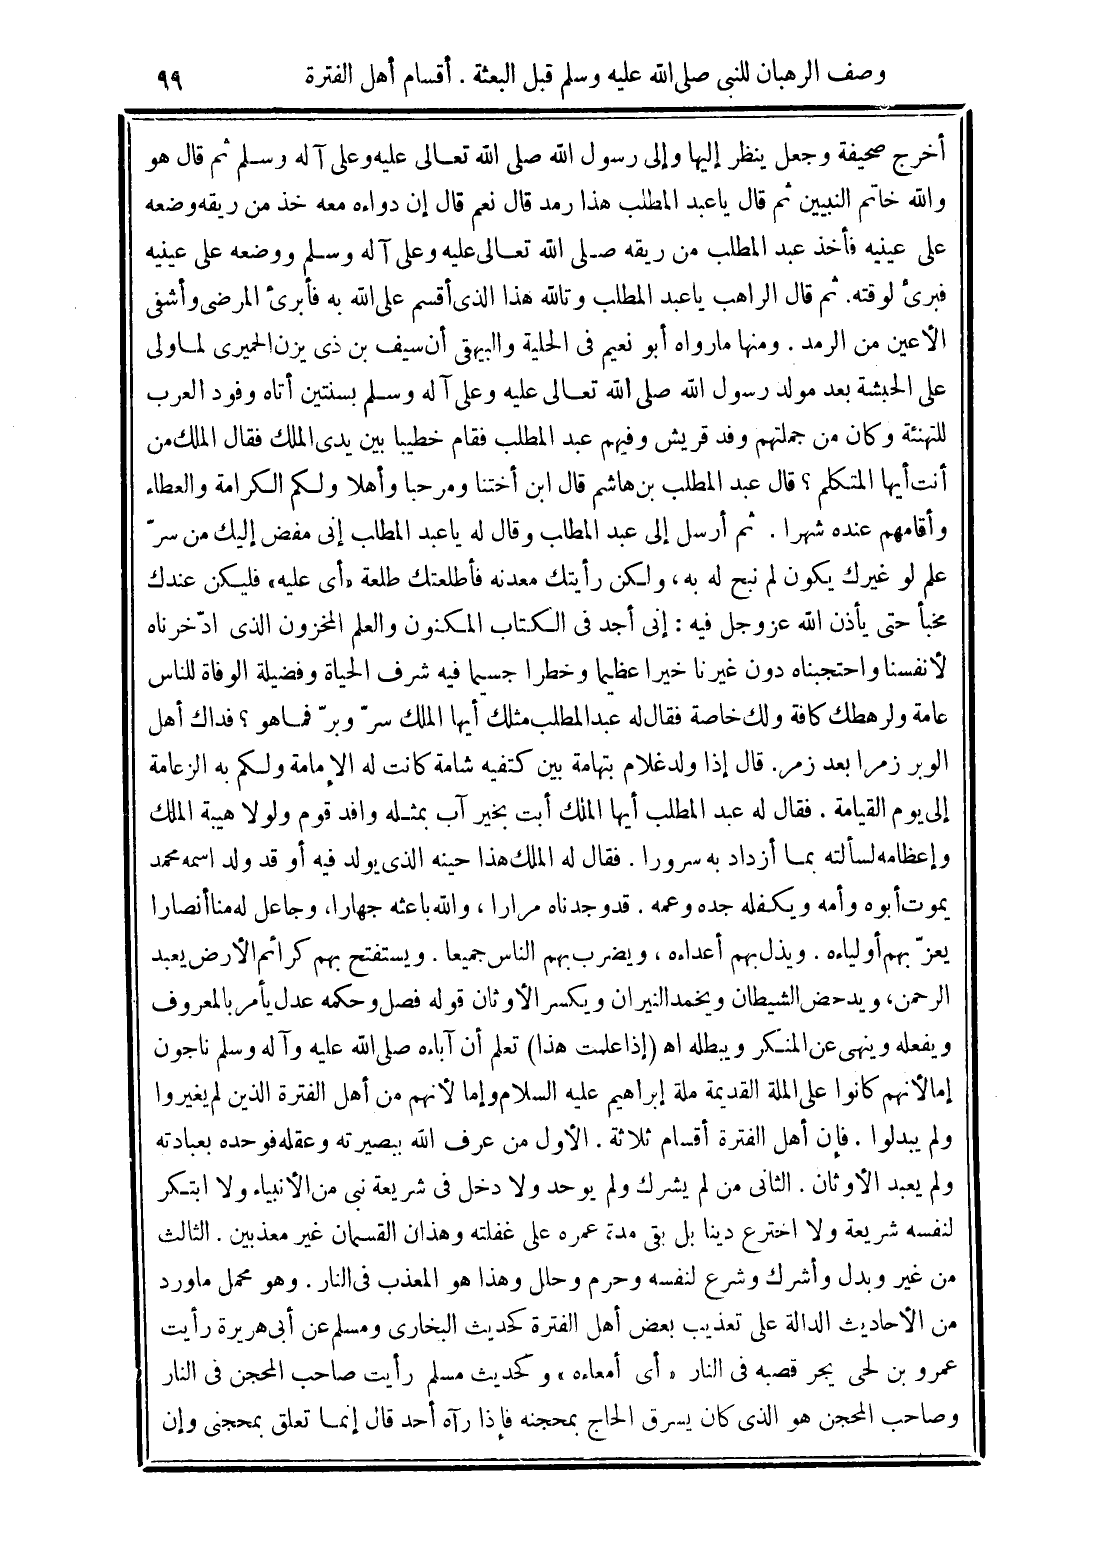 وصف الرهبان للنبي صلى الله عليه وسلم قبل البعثة . أقسام أهل الفترة ٩٩
أخرج صحيفة وجعل ينظر إليها وإلى رسول الله صلى الله تعالى عليه وعلى آله وسلم ثم قال هو
والله خاتم النبيين ثم قال ياعبد المطلب هذا رمد قال نعم قال إن دواءه معه خذ من ريقه وضعه
على عينيه فأخذ عبد المطلب من ريقه صلى الله تعالى عليه وعلى آله وسلم ووضعه على عينيه
فبرئ لوقته. ثم قال الراهب ياعبد المطلب وتالله هذا الذى أقسم على الله به فأبرئ المرضى وأشفى
الأعين من الرمد . ومنها مارواه أبو نعيم فى الحلية والبيهقى أن سيف بن ذى يزن الحميرى لما ولى
على الحبشة بعد مولد رسول الله صلى الله تعالى عليه وعلى آله وسلم بسنتين أتاه وفود العرب
للتهنئة وكان من جملتهم وفد قريش وفيهم عبد المطلب فقام خطيبا بين يدى الملك فقال الملك من
أنت أيها المتكلم ؟ قال عبد المطلب بن هاشم قال ابن أختنا ومرحبا وأهلا ولكم الكرامة والعطاء
وأقامهم عنده شهرا . ثم أرسل إلى عبد المطلب وقال له ياعبد المطلب إنى مفض إليك من سرّ
علم لو غيرك يكون لم نبح له به، ولكن رأيتك معدنه فأطلعتك طلعة «أى عليه» فليكن عندك
مخبأ حتى يأذن الله عز وجل فيه : إنى أجد فى الكتاب المكنون والعلم المخزون الذى ادّخرناه
لأنفسنا واحتجبناه دون غيرنا خيرا عظيما وخطرا جسيما فيه شرف الحياة وفضيلة الوفاة للناس
عامة ولرهطك كافة ولك خاصة فقال له عبد المطلب مثلك أيها الملك سرّ وبرّ فما هو ؟ فداك أهل
الوبر زمرا بعد زمر. قال إذا ولد غلام بتهامة بين كتفيه شامة كانت له الإمامة ولكم به الزعامة
إلى يوم القيامة . فقال له عبد المطلب أيها الملك أبت بخير آب بمثله وافد قوم ولولا هيبة الملك
وإعظامه لسألته بما أزداد به سرورا . فقال له الملك هذا حينه الذى يولد فيه أو قد ولد اسمه محمد
يموت أبوه وأمه ويكفله جده وعمه . قد وجدناه مرارا ، والله باعثه جهارا، وجاعل له منا أنصارا
يعزّ بهم أولياءه . ويذل بهم أعداءه ، ويضرب بهم الناس جميعا . ويستفتح بهم كرائم الأرض يعبد
الرحمن، ويدحض الشيطان ويخمد النيران ويكسر الأوثان قوله فصل وحكمه عدل يأمر بالمعروف
ويفعله وينهى عن المنكر ويبطله اه (إذا علمت هذا) تعلم أن آباءه صلى الله عليه وآله وسلم ناجون
إما لأنهم كانوا على الملة القديمة ملة إبراهيم عليه السلام وإما لأنهم من أهل الفترة الذين لم يغيروا
ولم يبدلوا . فإن أهل الفترة أقسام ثلاثة . الأول من عرف الله ببصيرته وعقله فوحده بعبادته
ولم يعبد الأوثان . الثانى من لم يشرك ولم يوحد ولا دخل فى شريعة نبى من الأنبياء ولا ابتكر
لنفسه شريعة ولا اخترع دينا بل بقى مدة عمره على غفلته وهذان القسمان غير معذبين . الثالث
من غير وبدل وأشرك وشرع لنفسه وحرم وحلل وهذا هو المعذب فى النار . وهو محمل ماورد
من الأحاديث الدالة على تعذيب بعض أهل الفترة كحديث البخارى ومسلم عن أبى هريرة رأيت
عمرو بن لحى يجر قصبه فى النار «أى أمعاءه» وكحديث مسلم رأيت صاحب المحجن فى النار
وصاحب المحجن هو الذى كان يسرق الحاج بمحجنه فإذا رآه أحد قال إنما تعلق بمحجنى وإن